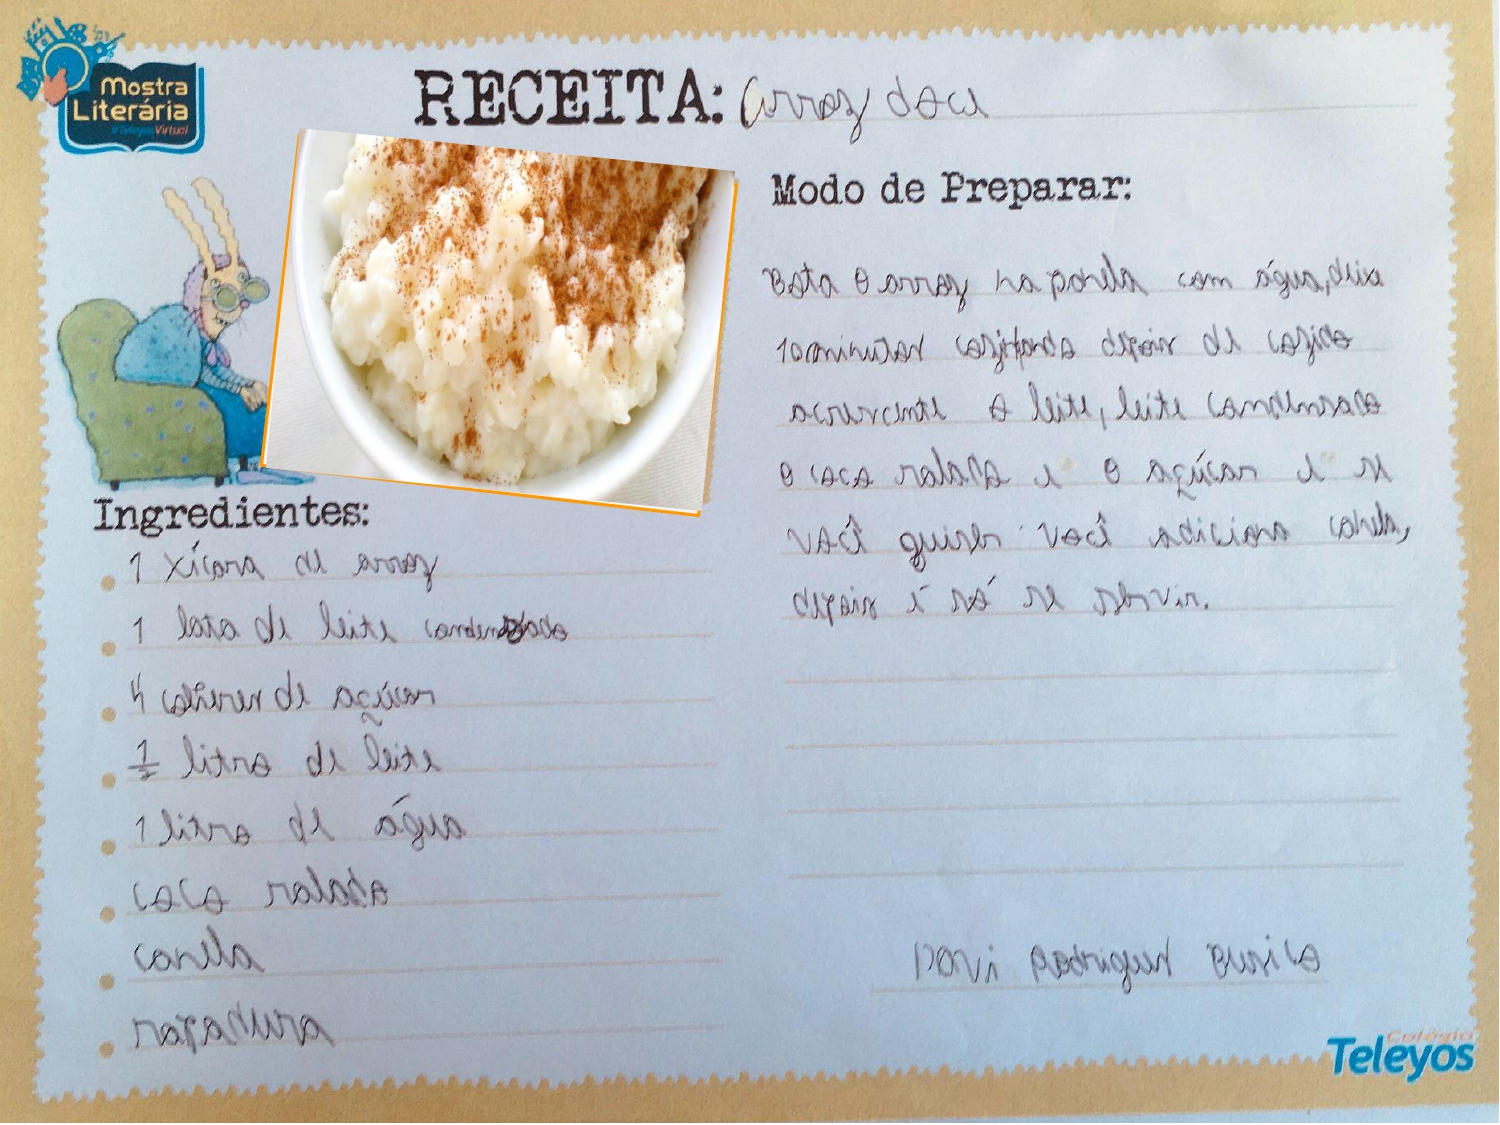 Mostra
Literária
#TeleyosVirtual
RECEITA: Arroz doce
Ingredientes:
1 xícara de arroz
1 lata de leite condensado
4 colheres de açúcar
1/2 litro de leite
1 litro de água
coco ralado
canela
rapadura
Modo de Preparar:
Bota o arroz na panela com água, deixa
10 minutos cozinhando depois de cozido
acrescente o leite, leite condensado
o coco ralado e o açúcar e se
você quiser você adiciona canela,
depois é só se servir.
Davi Rodrigues
Colégio
Teleyos